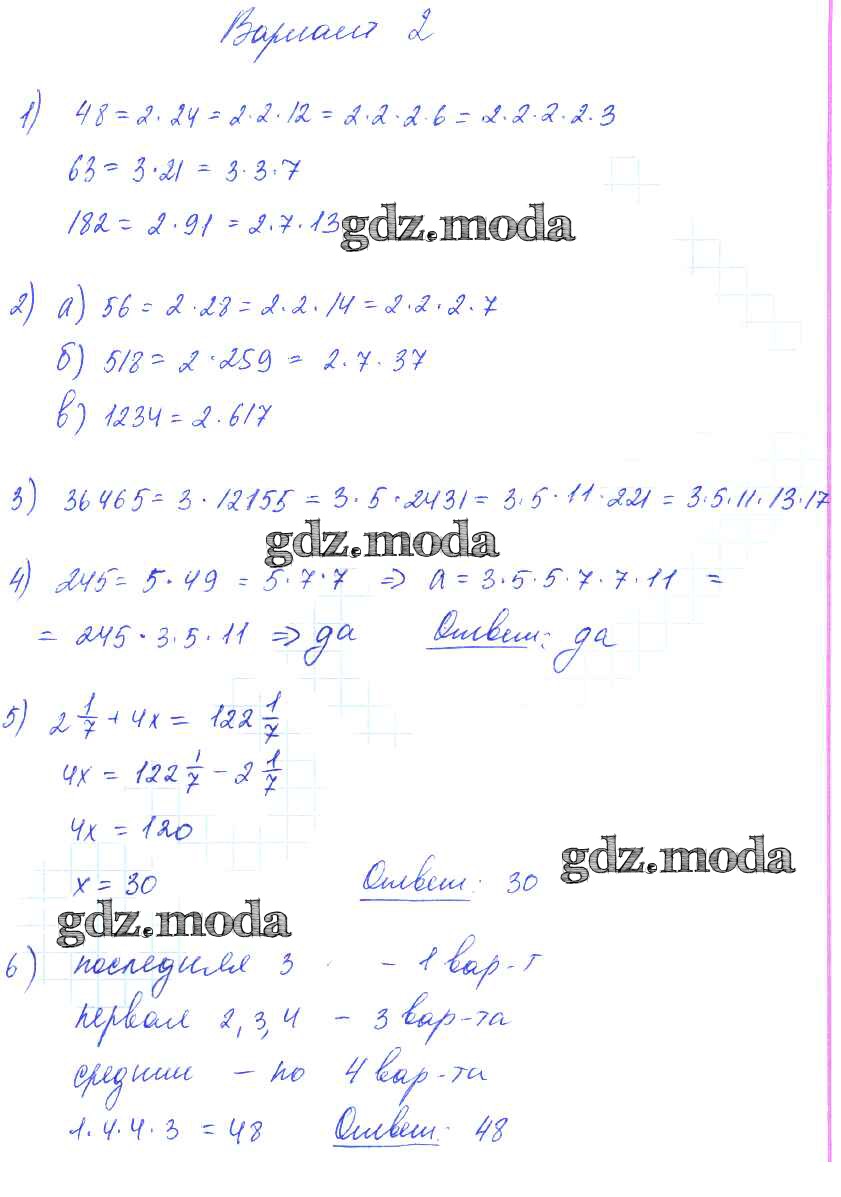 Вариант 2
1) 48 = 2·24 = 2·2·12 = 2·2·2·6 = 2·2·2·2·3
63 = 3·21 = 3·3·7
182 = 2·91 = 2·7·13
gdz.moda
2) а) 56 = 2·28 = 2·2·14 = 2·2·2·7
б) 518 = 2·259 = 2·7·37
в) 1234 = 2·617
3) 36465 = 3·12155 = 3·5·2431 = 3·5·11·221 = 3·5·11·13·17
gdz.moda
4) 245 = 5·49 = 5·7·7 => a = 3·5·5·7·7·11 =
= 245·3·5·11 => да Ответ: да
5) 2 1/7 + 4x = 122 1/7
4x = 122 1/7 - 2 1/7
4x = 120
gdz.moda
x = 30 Ответ: 30
gdz.moda
6) последняя 3 - 1 вар-т
первая 2, 3, 4 - 3 вар-та
средние - по 4 вар-та
1·4·4·3 = 48 Ответ: 48